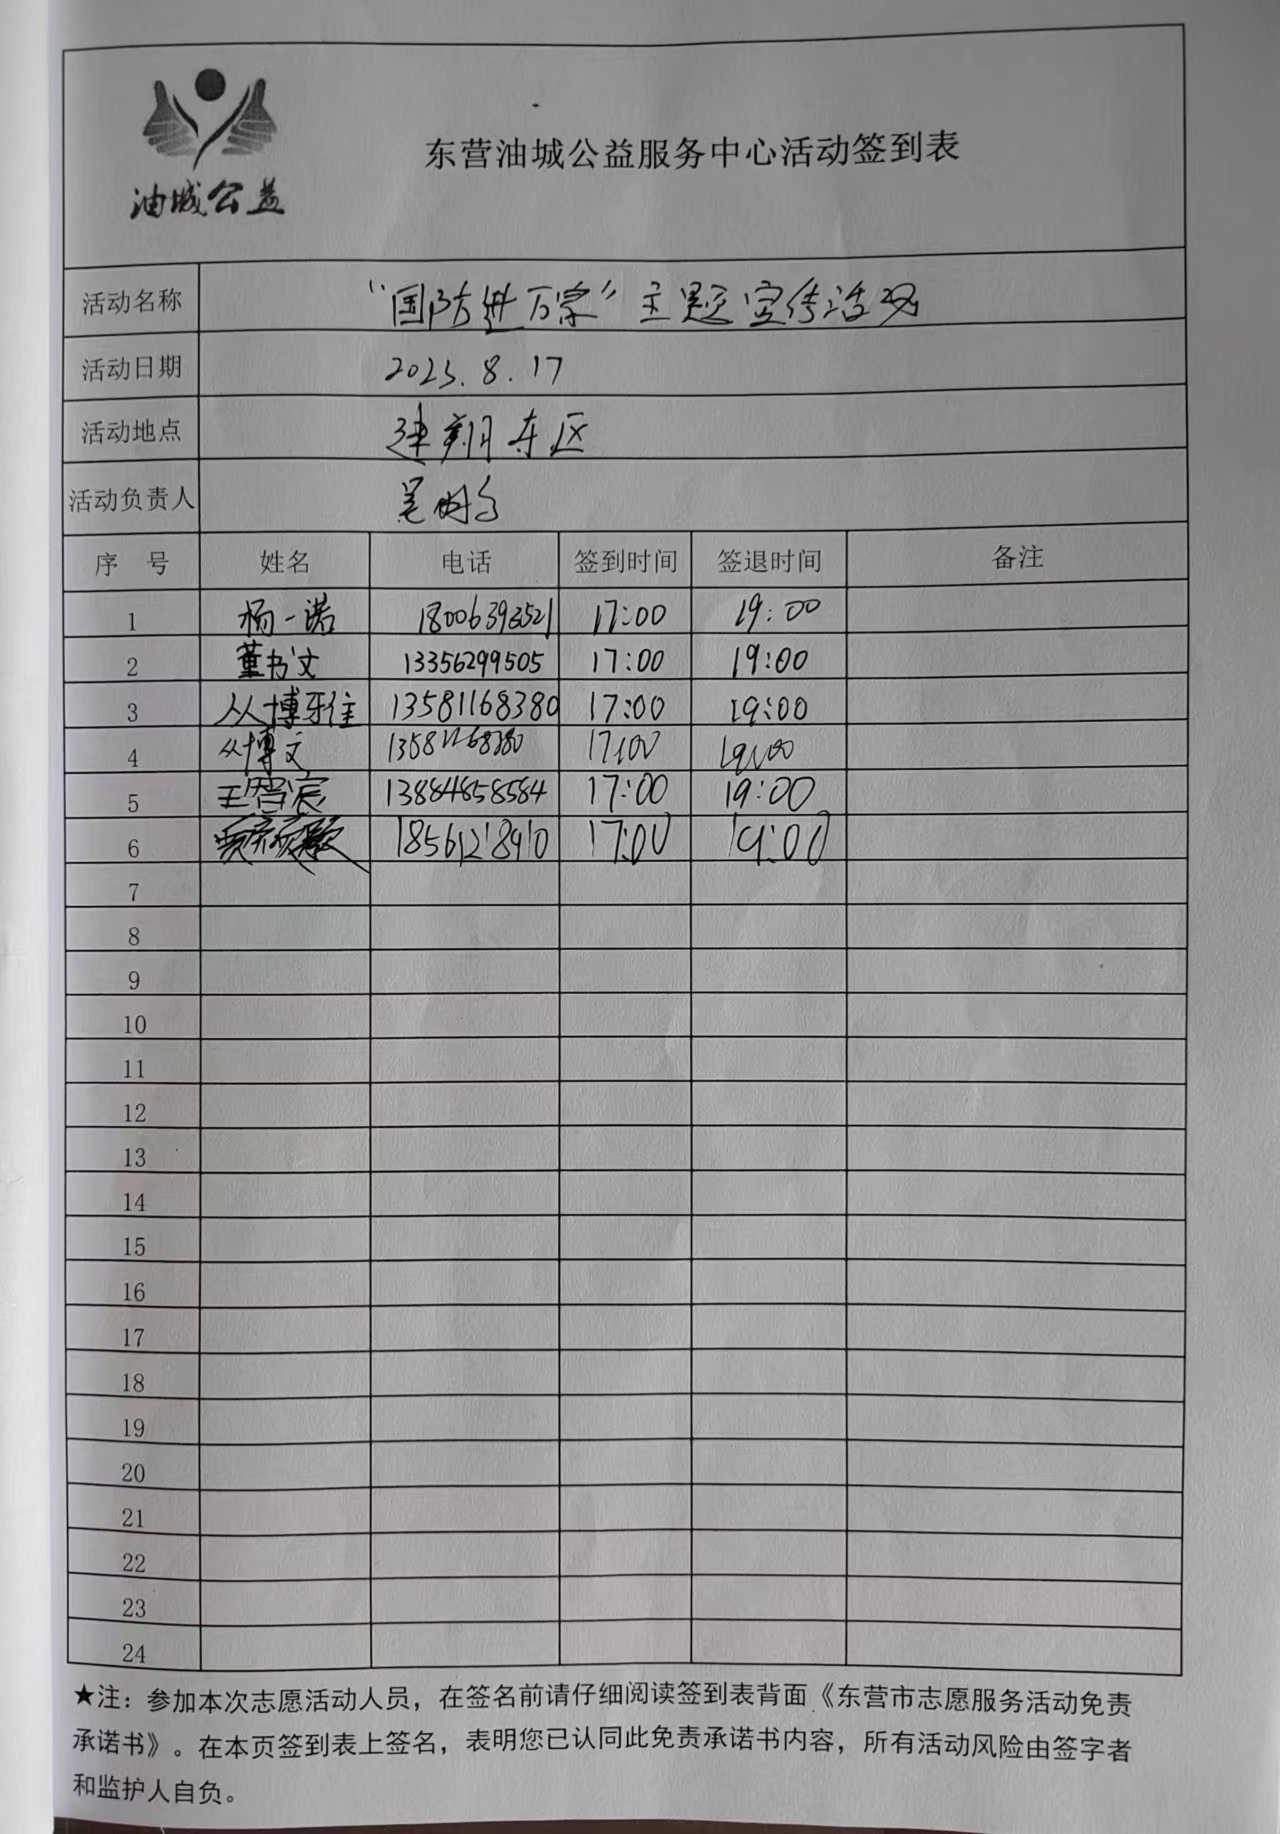 油城公益
东营油城公益服务中心活动签到表
活动名称 “国防进万家”主题宣传活动
活动日期 2023.8.17
活动地点 建翔东区
活动负责人
序 号 姓名 电话 签到时间 签退时间 备注
1 杨一诺 18006393521 17:00 19:00
2 董书文 13356299505 17:00 19:00
3 从博雅 13581168380 17:00 19:00
4 从博文 13581168380 17:00 19:00
5 王智宸 13884858584 17:00 19:00
6 18561218910 17:00 19:00
7
8
9
10
11
12
13
14
15
16
17
18
19
20
21
22
23
24
★注：参加本次志愿活动人员，在签名前请仔细阅读签到表背面《东营市志愿服务活动免责
承诺书》。在本页签到表上签名，表明您已认同此免责承诺书内容，所有活动风险由签字者
和监护人自负。